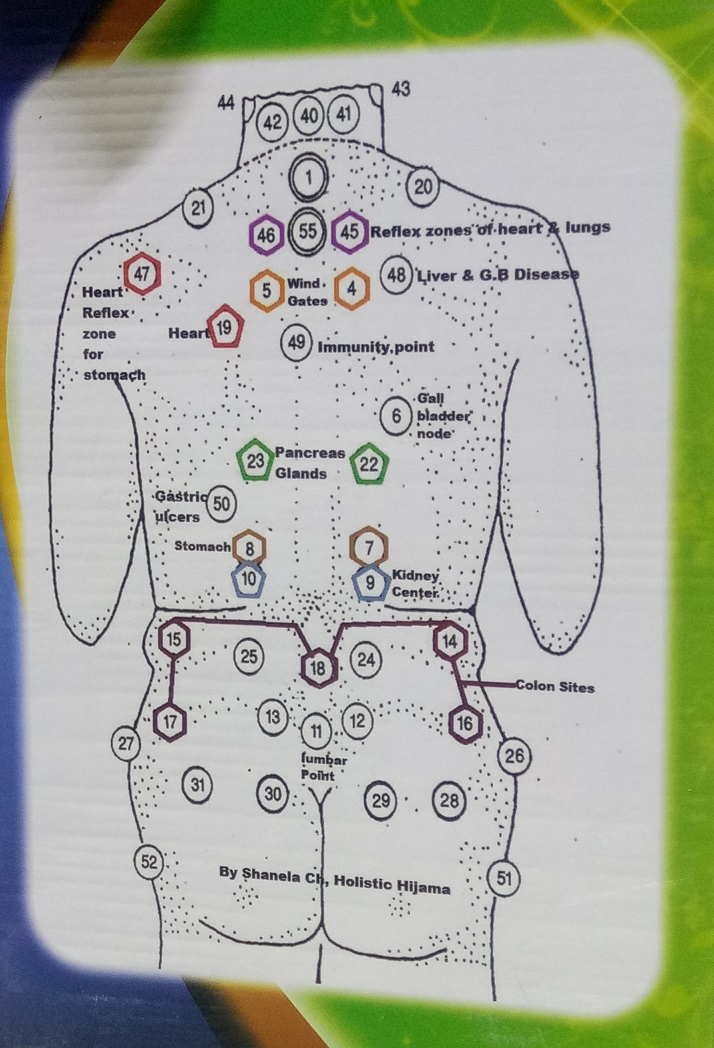 44
43
42 40 41
1
21
20
46 55 45 Reflex zones of heart & lungs
47
Heart
Reflex
zone
for
stomach
5 Wind
Gates 4
48 Liver & G.B Disease
Heart 19
49 Immunity.point
6 Gall
bladder
node
23 Pancreas
Glands 22
Gastric
ulcers 50
Stomach 8
7
10
9 Kidney
Center.
15
14
25 18 24
Colon Sites
17
16
13 11 12
lumbar
Point
27
26
31 30 29 28
52
51
By Shanela Ch, Holistic Hijama